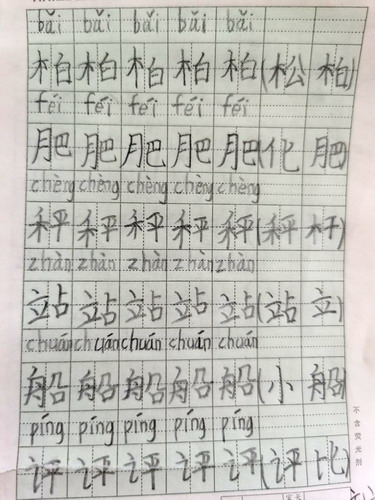 bǎi bǎi bǎi bǎi bǎi
柏 柏 柏 柏 柏 (松 柏)
féi féi féi féi féi
肥 肥 肥 肥 肥 (化 肥)
chèng chèng chèng chèng chèng
秤 秤 秤 秤 秤 (秤 杆)
zhàn zhàn zhàn zhàn zhàn
站 站 站 站 站 (站 立)
chuán chuán chuán chuán chuán
船 船 船 船 船 (小 船)
píng píng píng píng píng
评 评 评 评 评 (评 比)
不含荧光剂